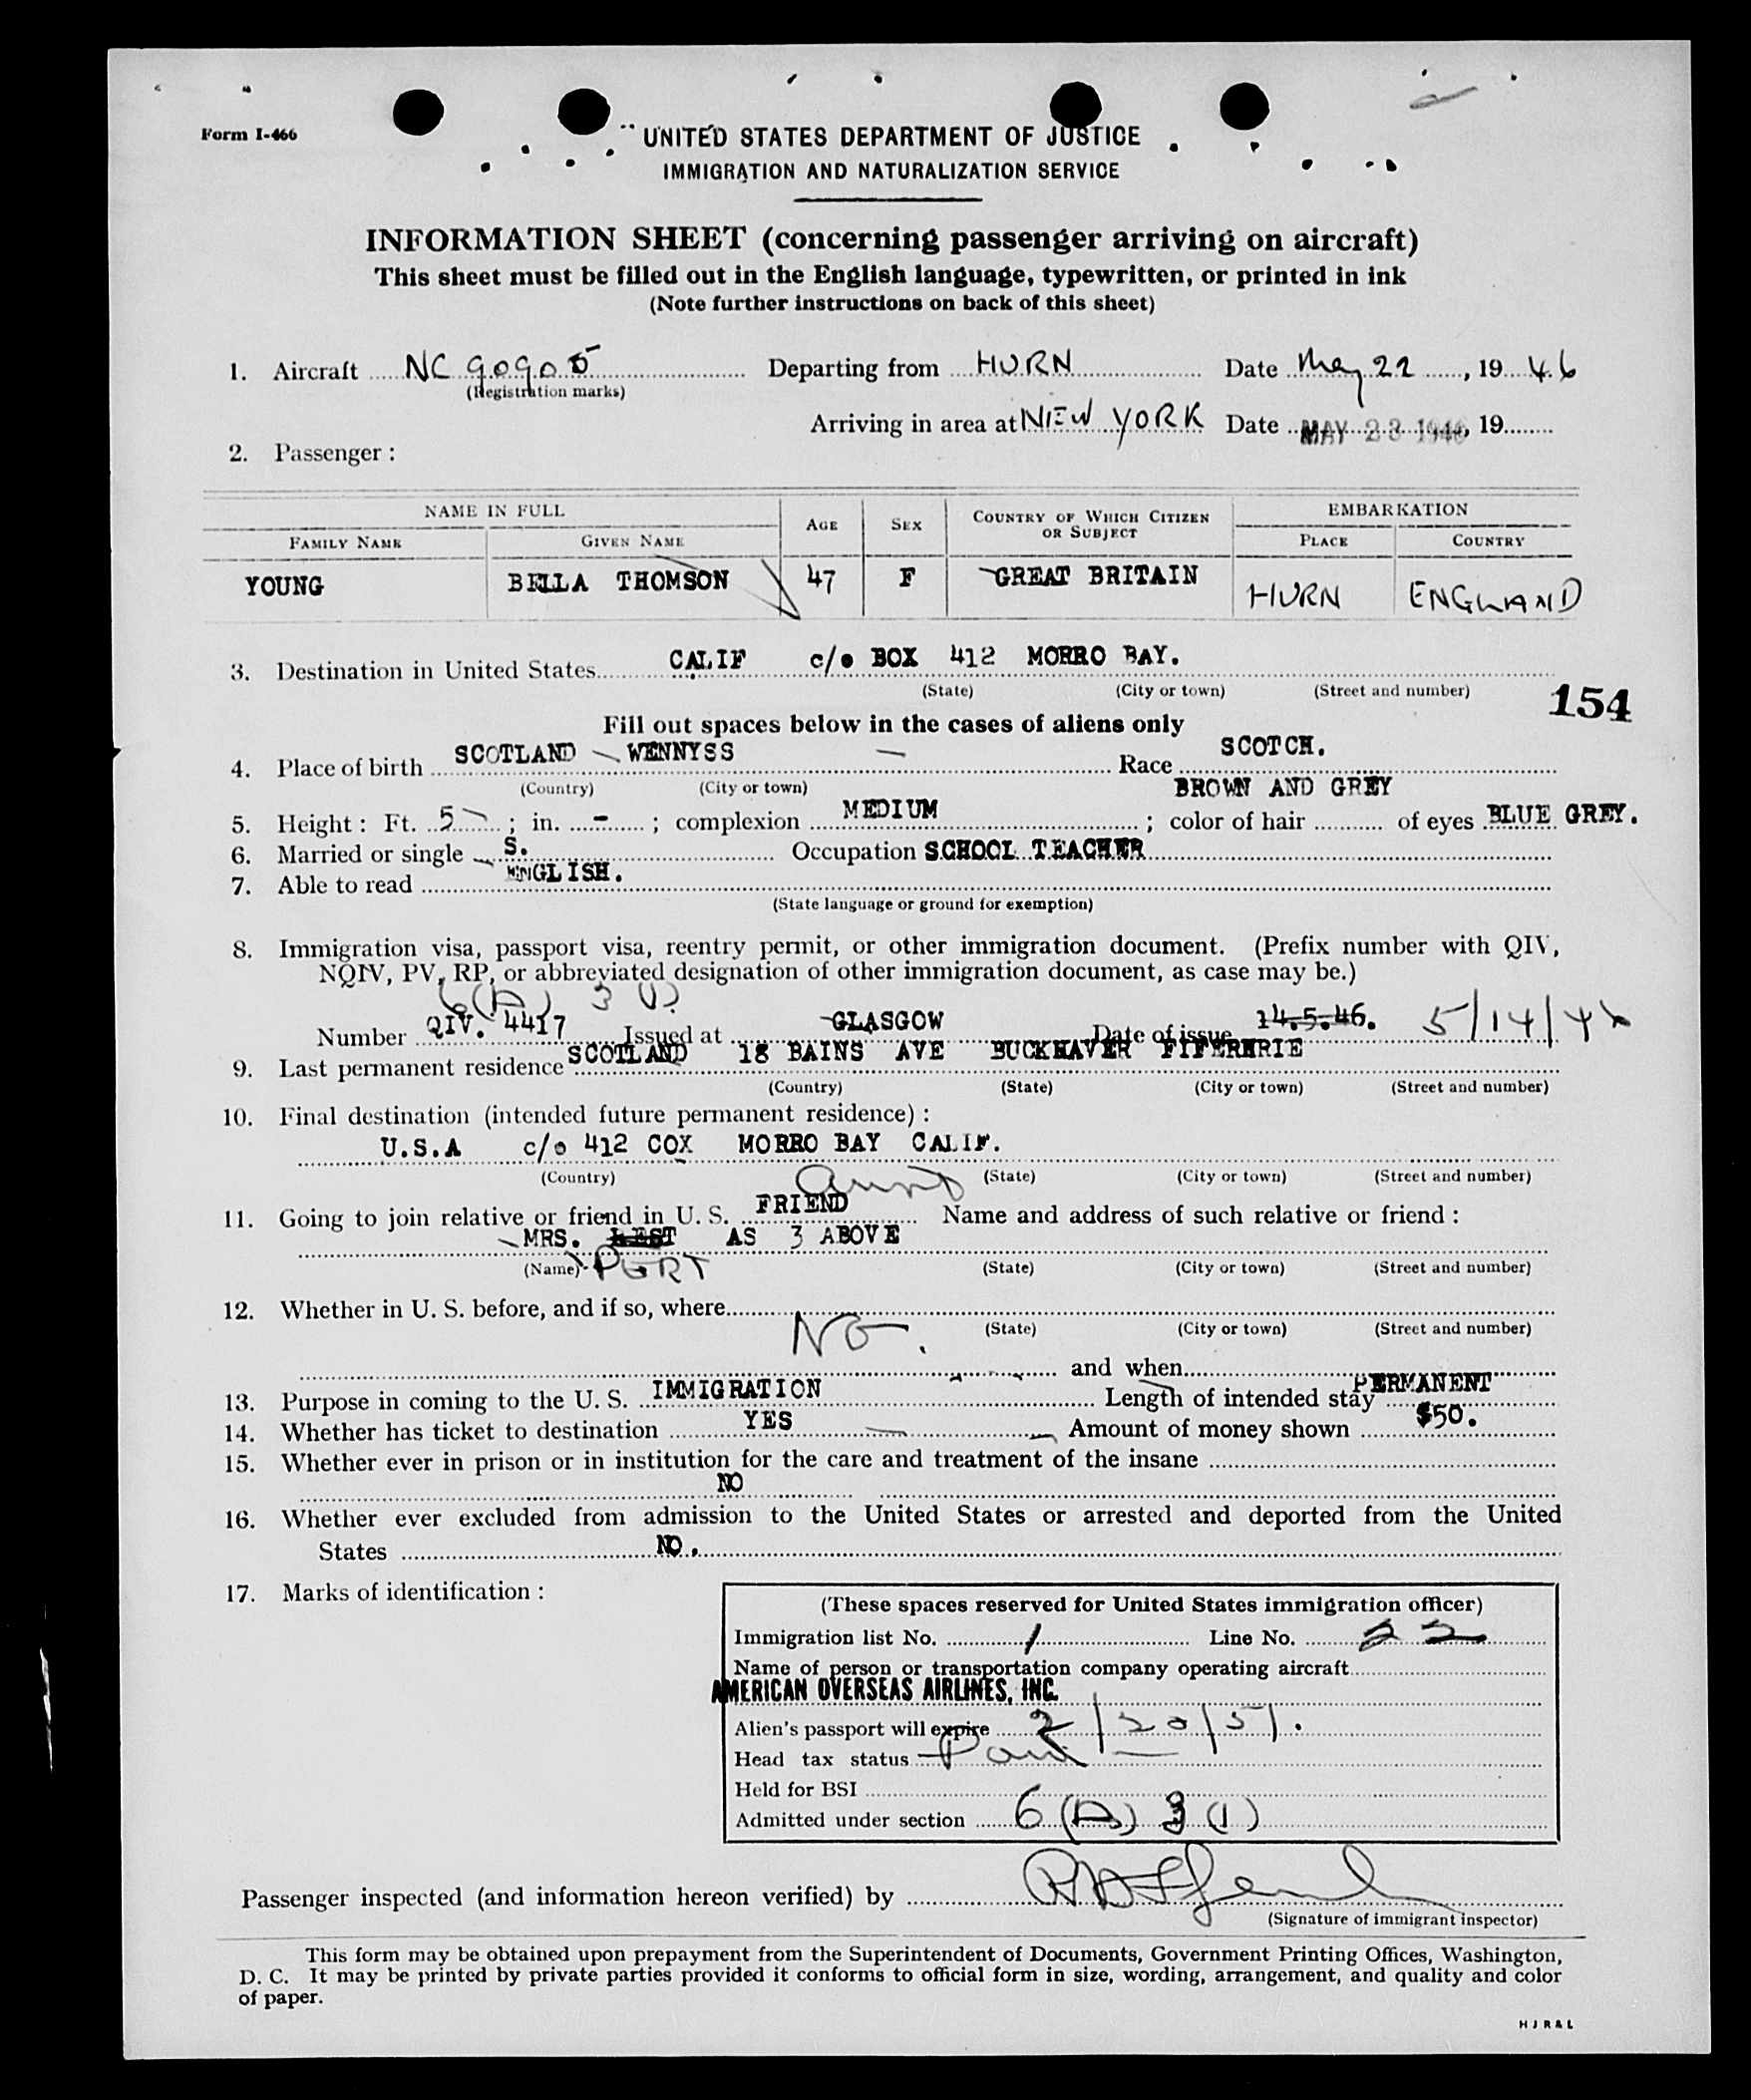 Form I-466
UNITED STATES DEPARTMENT OF JUSTICE
IMMIGRATION AND NATURALIZATION SERVICE
INFORMATION SHEET (concerning passenger arriving on aircraft)
This sheet must be filled out in the English language, typewritten, or printed in ink
(Note further instructions on back of this sheet)
1. Aircraft NC 90905 Departing from HURN Date May 22, 1946
(Registration marks)
Arriving in area at NEW YORK Date MAY 23 1946, 19
2. Passenger:
NAME IN FULL AGE SEX COUNTRY OF WHICH CITIZEN OR SUBJECT EMBARKATION
FAMILY NAME GIVEN NAME PLACE COUNTRY
YOUNG BELLA THOMSON 47 F GREAT BRITAIN HURN ENGLAND
3. Destination in United States CALIF c/o BOX 412 MORRO BAY.
(State) (City or town) (Street and number)
154
Fill out spaces below in the cases of aliens only
4. Place of birth SCOTLAND WENNYSS Race SCOTCH.
(Country) (City or town)
BROWN AND GREY
5. Height: Ft. 5; in. -; complexion MEDIUM; color of hair of eyes BLUE GREY.
6. Married or single S. Occupation SCHOOL TEACHER
7. Able to read ENGLISH.
(State language or ground for exemption)
8. Immigration visa, passport visa, reentry permit, or other immigration document. (Prefix number with QIV,
NQIV, PV, RP, or abbreviated designation of other immigration document, as case may be.)
6(A) 3 (1)
Number QIV. 4417 Issued at GLASGOW Date of issue 14.5.46. 5/14/46
9. Last permanent residence SCOTLAND 18 BAINS AVE BUCKHAVER
(Country) (State) (City or town) (Street and number)
10. Final destination (intended future permanent residence):
U.S.A c/o 412 COX MORRO BAY CALIF.
(Country) (State) (City or town) (Street and number)
Aunt
11. Going to join relative or friend in U. S. FRIEND Name and address of such relative or friend:
MRS. AS 3 ABOVE
(Name) PERT (State) (City or town) (Street and number)
12. Whether in U. S. before, and if so, where
NO. (State) (City or town) (Street and number)
and when
13. Purpose in coming to the U. S. IMMIGRATION Length of intended stay PERMANENT
14. Whether has ticket to destination YES Amount of money shown $50.
15. Whether ever in prison or in institution for the care and treatment of the insane
NO
16. Whether ever excluded from admission to the United States or arrested and deported from the United
States NO.
17. Marks of identification:
(These spaces reserved for United States immigration officer)
Immigration list No. 1 Line No. 22
Name of person or transportation company operating aircraft
AMERICAN OVERSEAS AIRLINES, INC.
Alien's passport will expire 2/20/51.
Head tax status Paid
Held for BSI
Admitted under section 6(A) 3 (1)
Passenger inspected (and information hereon verified) by
(Signature of immigrant inspector)
This form may be obtained upon prepayment from the Superintendent of Documents, Government Printing Offices, Washington,
D. C. It may be printed by private parties provided it conforms to official form in size, wording, arrangement, and quality and color
of paper.
HJR&L